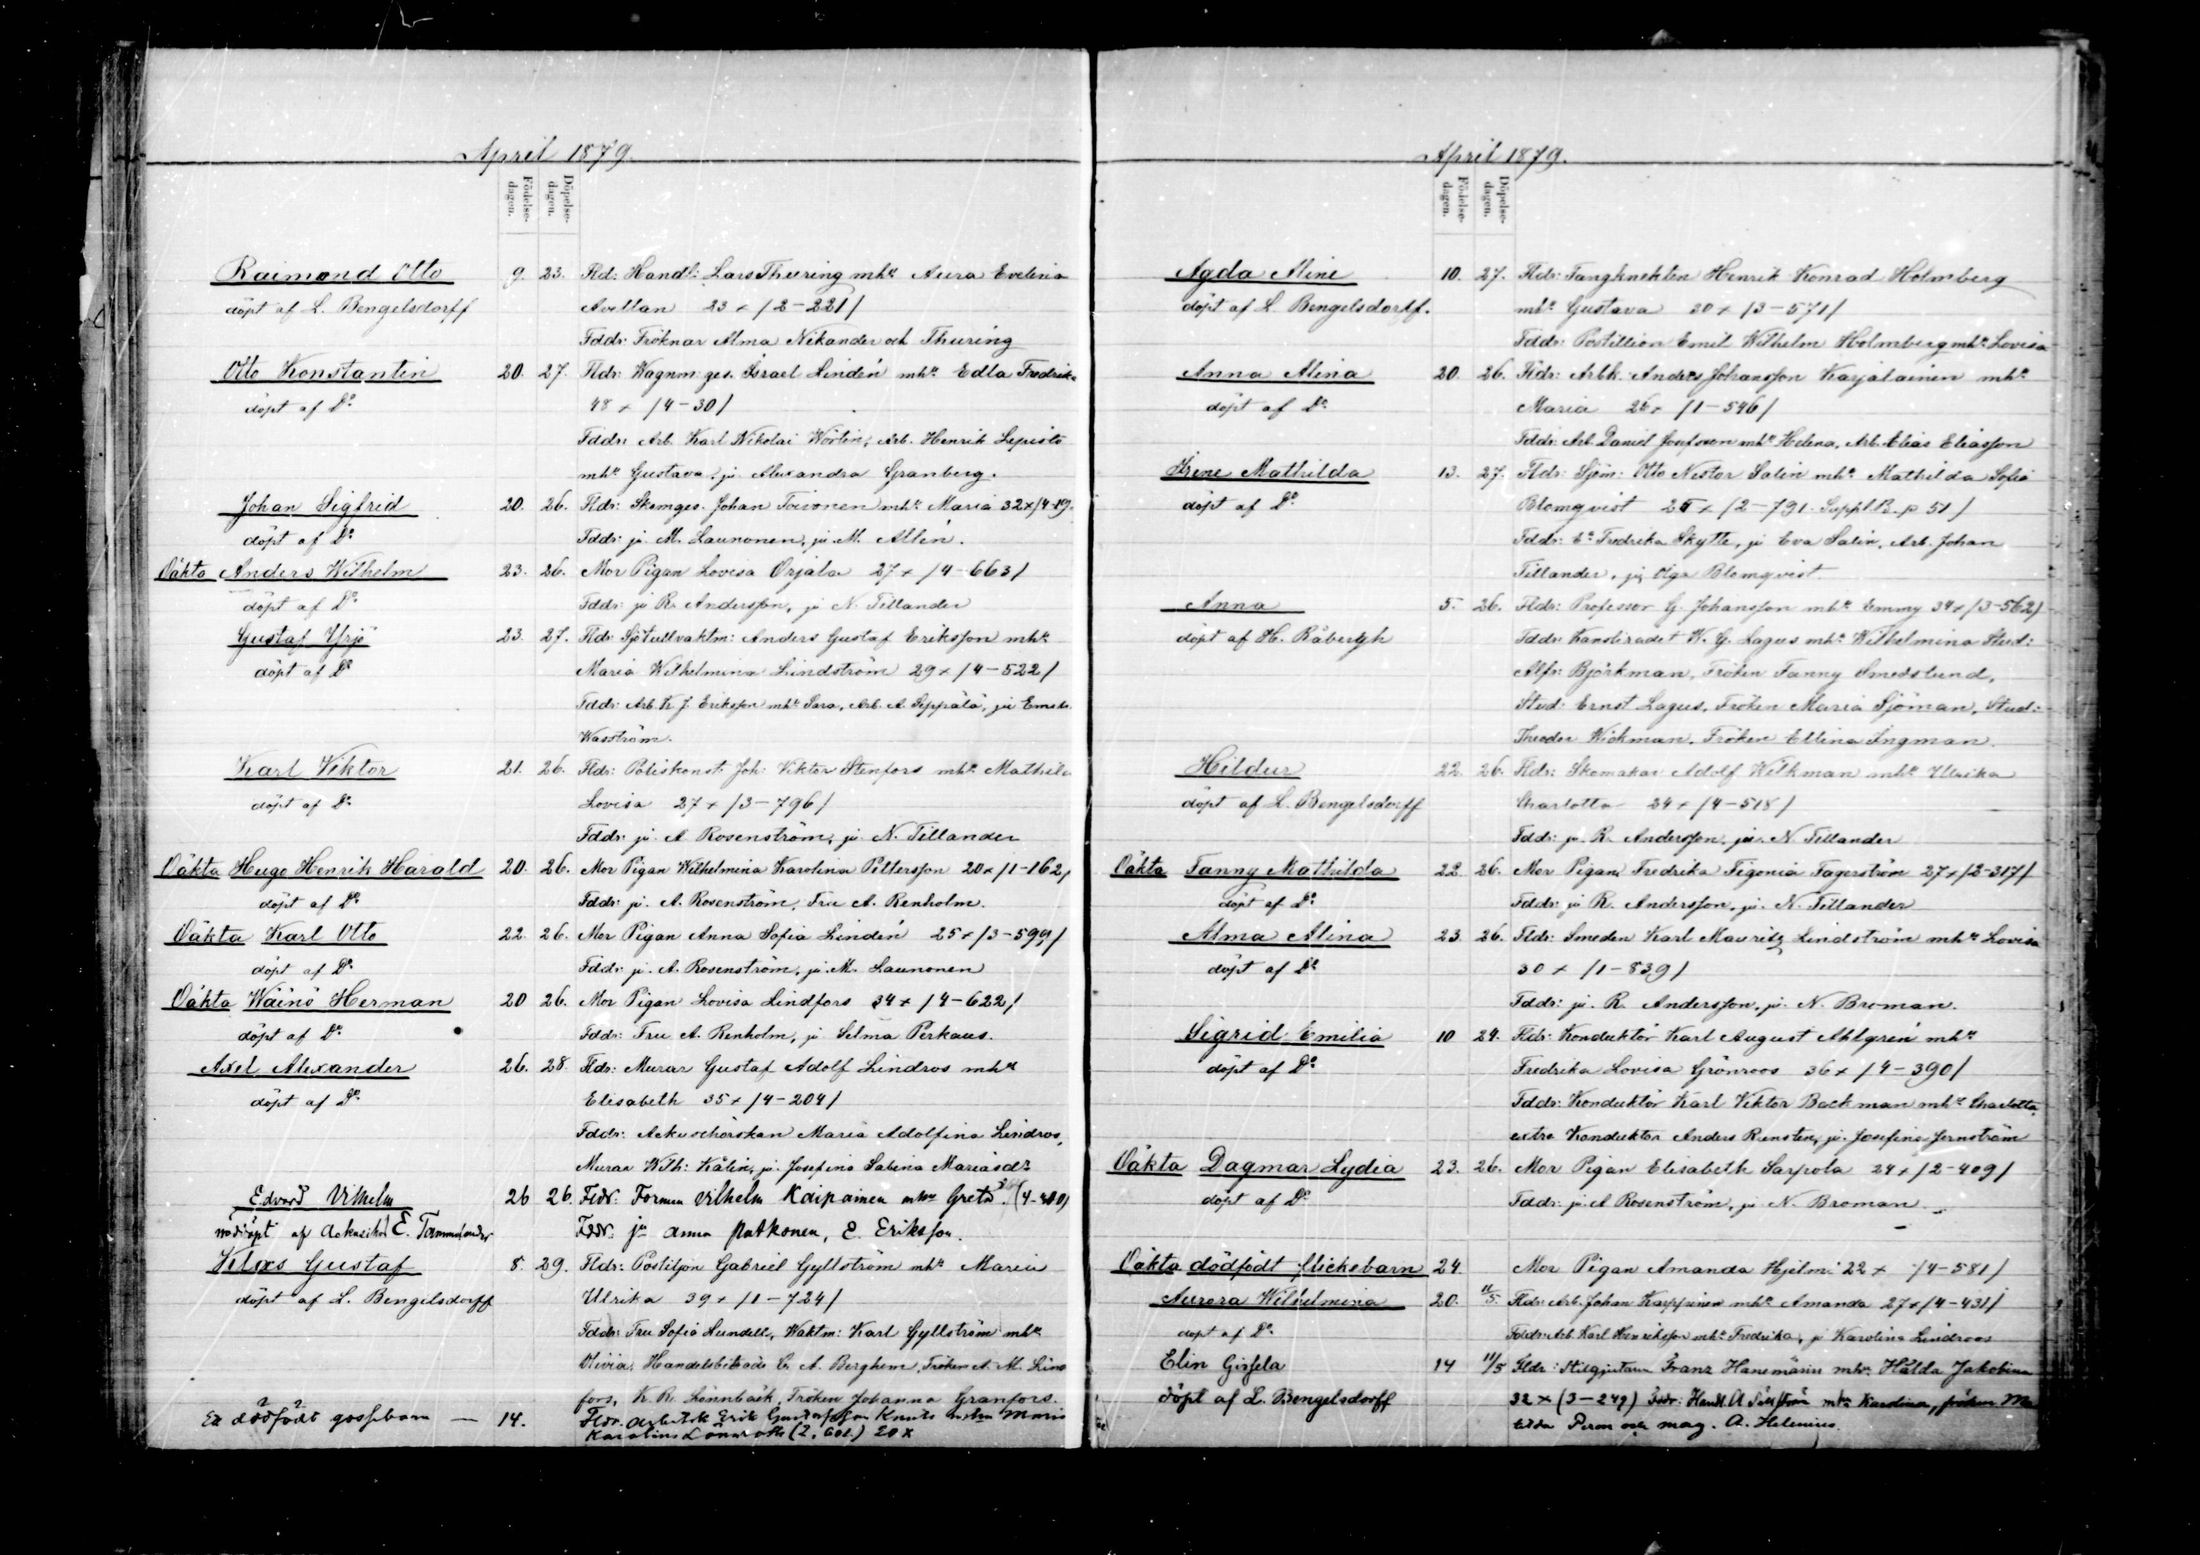 April 1879.
Födelse-dagen.
Döpelse-dagen.
Raimond Otto 9. 23. Fld: Handl: Lars Thuring mhu Aura Evelina
döpt af L. Bengelsdorff Avellan 23 × /2-221/
Fddr: Fröknar Alma Nikander och Thuring
Otto Konstantin 20. 27. Fldr: Wagnm: ges. Israel Lindén mhu Edla Fredrika
döpt af Do 48 × /4-30/
Fddr: Arb. Karl Nikolai Wörlin, Arb. Henrik Lepistö
mhu Gustava, ju Alexandra Granberg.
Johan Sigfrid 20. 26. Fldr: Skomges. Johan Toivonen mhu Maria 32 × /4-19.
döpt af Do Fddr: ju M. Launonen, ju M. Allén.
Oäkta Anders Wilhelm 23. 26. Mor Pigan Lovisa Orjala 27 × /4-663/
döpt af Do Fddr: ju R. Andersson, ju N. Tillander
Gustaf Yrjö 23. 27. Fldr: Sjötullvaktm: Anders Gustaf Eriksson mhu
döpt af Do Maria Wilhelmina Lindström 29 × /4-522/
Fddr: Arb. K. J. Eriksson mhu Sara, Arb. A. Seppälä, ju
Wasström.
Karl Viktor 21. 26. Fldr: Poliskonst. Joh: Viktor Stenfors mhu Mathilda
döpt af Do Lovisa 27 × /3-796/
Fddr: ju A. Rosenström, ju N. Tillander
Oäkta Hugo Henrik Harald 20. 26. Mor Pigan Wilhelmina Karolina Pettersson 20 × /1-162/
döpt af Do Fddr: ju A. Rosenström, Fru A. Renholm.
Oäkta Karl Otto 22. 26. Mor Pigan Anna Sofia Lindén 25 × /3-599/
döpt af Do Fddr: ju A. Rosenström, ju M. Launonen
Oäkta Wäinö Herman 20 26. Mor Pigan Lovisa Lindfors 34 × /4-622/
döpt af Do Fddr: Fru A. Renholm, ju Selma Perkaus.
Axel Alexander 26. 28 Fldr: Murar Gustaf Adolf Lindros mhu
döpt af Do Elisabeth 35 × /4-204/
Fddr: Ackuschörskan Maria Adolfina Lindros,
Murar Wilh: Kälin, ju Josefina Sabina Mariasdr
Edvard Vilhelm 26 26. Fldr: Forman Vilhelm Kaipainen mhu Greta (4-400)
nöddöpt af E. Fddr: ju Anna Putkonen, E. Eriksson.
Klas Gustaf 8. 29. Fldr: Postiljon Gabriel Gyllström mhu Maria
döpt af L. Bengelsdorff Ulrika 39 × /1-724/
Fddr: Fru Sofia Sundell, Waktm: Karl Gyllström mhu
Olivia, Handelsbiträde C. A. Berghem, Fröken A. M. Lind
fors, K. R. Lönnbäck, Fröken Johanna Granfors.
Ett dödfödt gossebarn — 14. Fldr: Arbetsk Erik Gustafsson mhu Maria
Karolina (2.601) 20 ×
April 1879.
Födelse-dagen.
Döpelse-dagen.
Agda Aline 10. 27. Fldr: Fangknekten Henrik Konrad Holmberg
döpt af L. Bengelsdorff. mhu Gustava 30 × /3-571/
Fddr: Postillion Emil Wilhelm Holmberg mhu Lovisa
Anna Alina 20. 26. Fldr: Arbk. Anders Johansson Karjalainen mhu
döpt af Do Maria 26 × /1-546/
Fddr: Arb. Daniel Josefsson mhu Helena, Arb. Elias Eliasson
Irene Mathilda 13. 27. Fldr: Sjöm: Otto Nestor Salin mhu Mathilda Sofia
döpt af Do Blomqvist × /2-791. Suppl. B. p 51/
Fddr: Ea Fredrika Skytte, ju Eva Salin, Arb. Johan
Tillander, ju Olga Blomqvist.
Anna 5. 26. Fldr: Professor G. Johansson mhu Emmy 34 × /3-562/
döpt af H. Råbergh Fddr: Kansliradet W. G. Lagus mhu Wilhelmina Stud:
Alfr: Björkman, Fröken Fanny Smedslund,
Stud: Ernst Lagus, Fröken Maria Sjöman, Stud:
Theodor Wickman, Fröken Ellina Ingman.
Hildur 22. 26. Fldr: Skomakar Adolf Wilkman mhu Ulrika
döpt af L. Bengelsdorff Charlotta 24 × /4-518/
Fddr: ju R. Andersson, ju N. Tillander
Oäkta Fanny Mathilda 22. 26. Mor Pigan Fredrika Figonia Fagerström 27 × /2-317/
döpt af Do Fddr: ju R. Andersson, ju N. Tillander
Alma Alina 23. 26. Fldr: Smeden Karl Mauritz Lindström mhu Lovisa
döpt af Do 30 × /1-839/
Fddr: ju R. Andersson, ju N. Broman.
Sigrid Emilia 10 24. Fldr: Konduktör Karl August Ahlgrén mhu
döpt af Do Fredrika Lovisa Grönroos 36 × /4-390/
Fddr: Konduktör Karl Viktor Backman mhu Charlotta,
extra Konduktör Anders Runsten, ju Josefina Jernström
Oäkta Dagmar Lydia 23. 26. Mor Pigan Elisabeth Sarpola 24 × /2-409/
döpt af Do Fddr: ju A Rosenström, ju N. Broman.
Oäkta dödfödt flickebarn 24. Mor Pigan Amanda Hjelm 22 × /4-581/
Aurora Wilhelmina 20. 11/5. Fldr: Arb. Johan Karppinen mhu Amanda 27 × /4-431/
döpt af Do Fddr: Arb Karl Henriksson mhu Fredrika, ju Karolina Lindroos
Elin Gisela 14 11/5 Fldr: Stilgjutare Franz Hanemann mhu Hilda Jakobina
döpt af L. Bengelsdorff 32 × (3-249) Fddr: Handl. A mhu Karolina, fröken Ma
tilda Piron och mag. A. Helenius.